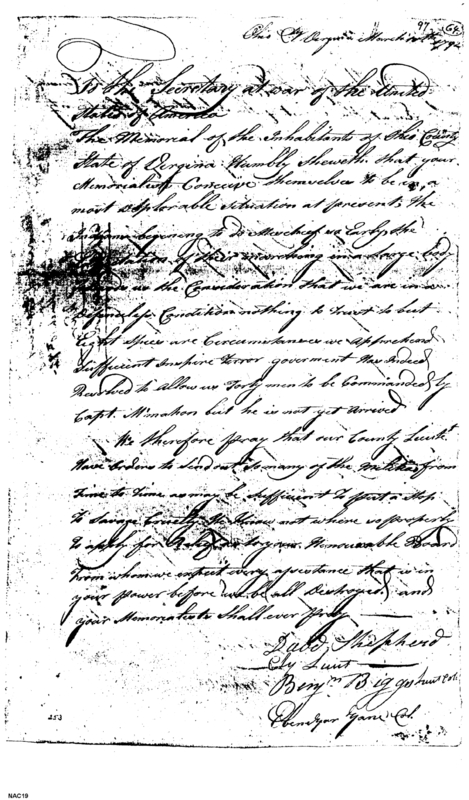 97 64
Ohio Cy Vergina March 1792
To the Secretary at war of the United
States of America
The Memorial of the Inhabitants of Ohio County
State of Vergina Humbly Sheweth that your
Memorialists Conceive themselves to be in a
most deplorable Situation at present; the
Indians begining to do Mischief so Early, the
of their in a large body
us the Consideration that we are in a
Defenceless Condition nothing to Trust to but
Eight Spies are Circumstances we apprehend
Sufficient Inspire Terror goverment has Indeed
Resolved to Allow us Forty men to be Commanded by
Capt. McMahon but he is not yet Arrived
We therefore pray that our County Lieut.
Have Orders to Send out So many of the Militia from
Time to Time as may be Sufficient to put a Stop
To Savage Cruelty We Know not where so properly
To apply for Relief as to your Honourable Board
From whom we expect every assistance that is in
your power before we be all Destroyed and
your Memorialists Shall ever pray
David Shepherd
Cy Lieut
Benjn Biggs Lieut Col.
Ebenezar Zane Col.
253
NAC19